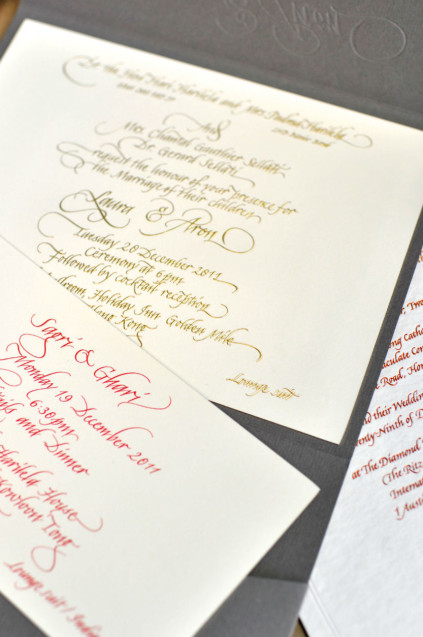 & Aron
Dr the Hon Hari Harilela and Mrs Padma Harilela
And
Mrs Chantal Gauthier Sellati
Dr Gerard Sellati
request the honour of your presence for
the Marriage of their children
Laura & Aron
Tuesday 20 December 2011
Ceremony at 6pm
Followed by cocktail reception
Ballroom Holiday Inn Golden Mile
Hong Kong
Lounge suit
Sagri & Gharry
Monday 19 December 2011
6:30pm
and Dinner
Harilela House
Kowloon Tong
Lounge suit /
and their Wedding
at The Diamond
(The Ritz
Interna
1 Aust